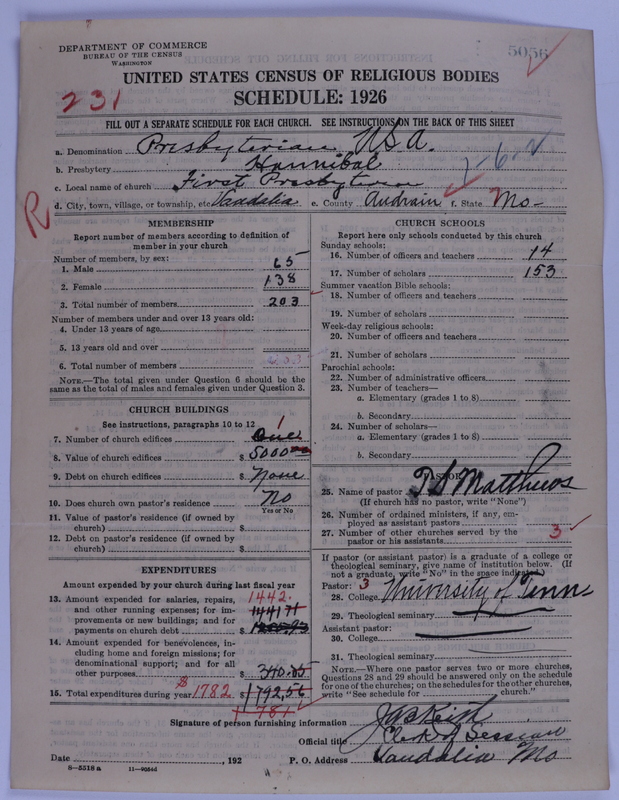 DEPARTMENT OF COMMERCE
BUREAU OF THE CENSUS
WASHINGTON
5056
UNITED STATES CENSUS OF RELIGIOUS BODIES
231
SCHEDULE: 1926
FILL OUT A SEPARATE SCHEDULE FOR EACH CHURCH. SEE INSTRUCTIONS ON THE BACK OF THIS SHEET
a. Denomination Presbyterian USA.
b. Presbytery Hannibal
c. Local name of church First Presbyterian
d. City, town, village, or township, etc Vandalia e. County Audrain f. State Mo-
R
MEMBERSHIP
Report number of members according to definition of
member in your church
Number of members, by sex:
1. Male 65
2. Female 138
3. Total number of members 203
Number of members under and over 13 years old:
4. Under 13 years of age
5. 13 years old and over
6. Total number of members 203
NOTE.—The total given under Question 6 should be
same as the total of males and females given under Question 3.
CHURCH BUILDINGS
See instructions, paragraphs 10 to 12
1
7. Number of church edifices One
8. Value of church edifices $ 5000
9. Debt on church edifices $ None
10. Does church own pastor's residence No
Yes or No
11. Value of pastor's residence (if owned by
church) $
12. Debt on pastor's residence (if owned by
church) $
EXPENDITURES
Amount expended by your church during last fiscal year
13. Amount expended for salaries, repairs, 1442.
and other running expenses; for im- 1441 71
provements or new buildings; and for
payments on church debt $
14. Amount expended for benevolences, in-
cluding home and foreign missions; for
denominational support; and for all
other purposes $ 340.85
15. Total expenditures during year $1782. $ 1792,56
1781
CHURCH SCHOOLS
Report here only schools conducted by this church
Sunday schools:
16. Number of officers and teachers 14
17. Number of scholars 153
Summer vacation Bible schools:
18. Number of officers and teachers
19. Number of scholars
Week-day religious schools:
20. Number of officers and teachers
21. Number of scholars
Parochial schools:
22. Number of administrative officers
23. Number of teachers—
a. Elementary (grades 1 to 8)
b. Secondary
24. Number of scholars—
a. Elementary (grades 1 to 8)
b. Secondary
PASTOR
25. Name of pastor T S Matthews
(If church has no pastor, write "None")
26. Number of ordained ministers, if any, em-
ployed as assistant pastors
27. Number of other churches served by the
pastor or his assistants 3
If pastor (or assistant pastor) is a graduate of a college or
theological seminary, give name of institution below. (If
not a graduate, write "No" in the space indicated)
Pastor: 3
28. College University of Tenn
29. Theological seminary
Assistant pastor:
30. College
31. Theological seminary
NOTE.—Where one pastor serves two or more churches,
Questions 28 and 29 should be answered only on the schedule
for one of the churches; on the schedules for the other churches,
write "See schedule for church."
Signature of person furnishing information Keith
Official title Clerk of Session
Date , 192 P. O. Address Vandalia Mo
8—5518 a 11—90546